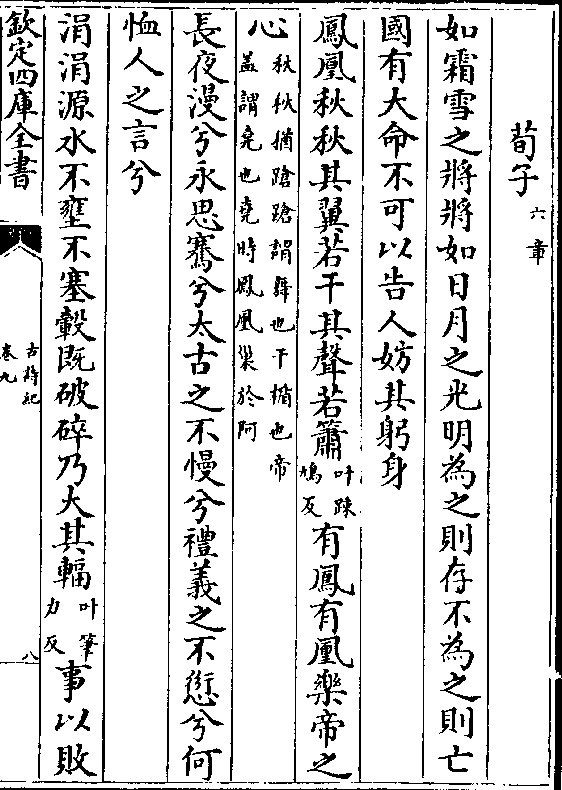 荀子六章
如霜雪之將將如日月之光明為之則存不為之則亡
國有大命不可以告人妨其躬身
鳳凰秋秋其翼若干其聲若簫叶疎鳩反有鳳有凰樂帝之
心秋秋猶蹌蹌謂舞也干楯也帝蓋謂堯也堯時鳳凰巢於阿
長夜漫兮永思騫兮太古之不慢兮禮義之不愆兮何
恤人之言兮
涓涓源水不壅不塞轂既破碎乃大其輻叶筆力反事以敗
欽定四庫全書
古詩紀
卷九
八